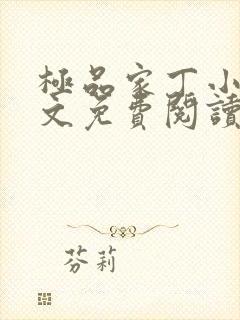 極品家丁小
文免費閱讀
芬莉